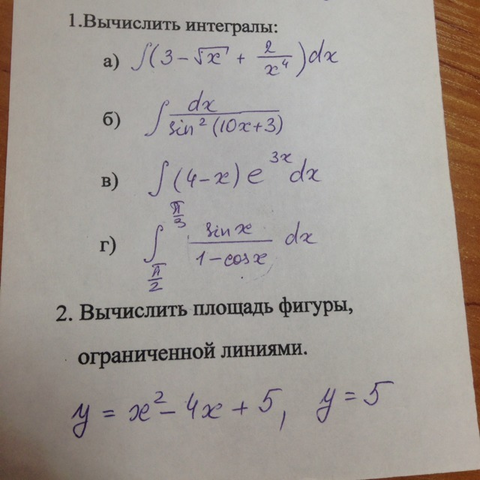 1.Вычислить интегралы:
а) ∫(3 - √x + 2/x⁴)dx
б) ∫ dx/sin²(10x+3)
в) ∫(4-x)e^{3x}dx
г) ∫_{π/2}^{π/3} sinx/(1-cosx) dx
2. Вычислить площадь фигуры,
ограниченной линиями.
y = x² - 4x + 5, y = 5